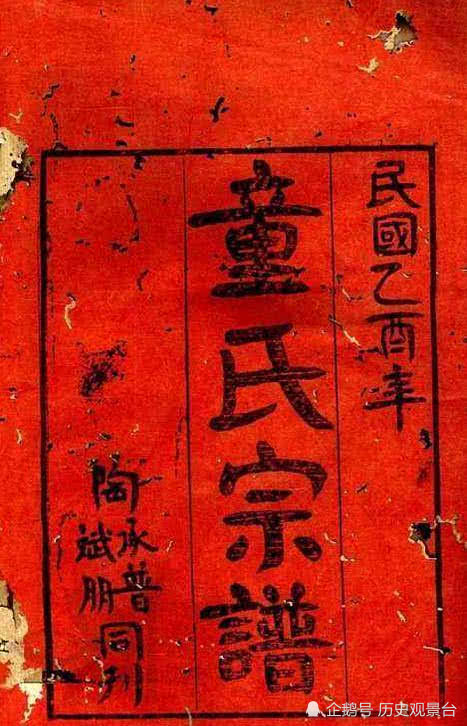 民國乙酉年
童氏宗譜
陶承普斌朋同刊
企鹅号 历史观景台